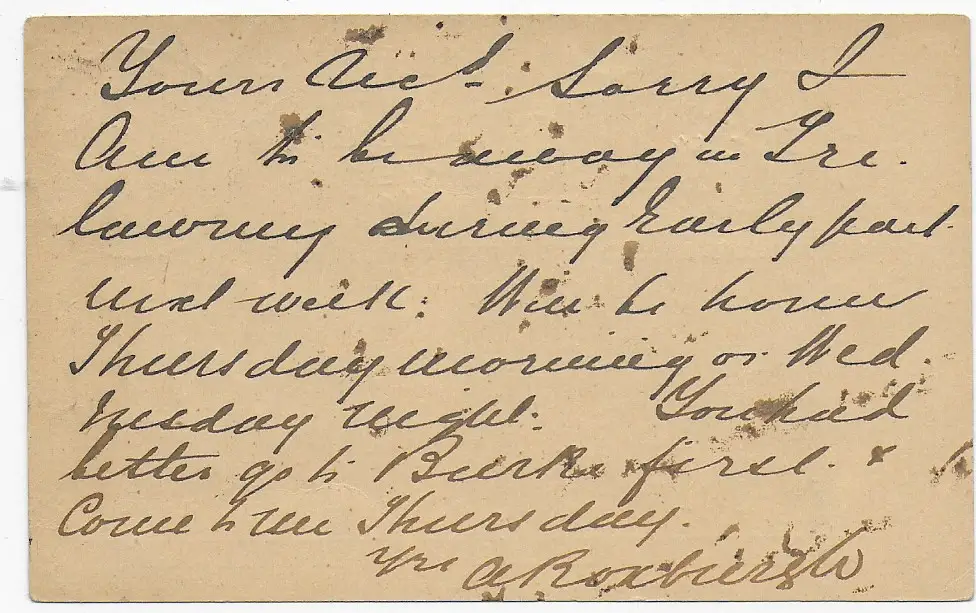 Yours Recd. Sorry I
Am to be away in Tre.
lawney during Early part
next week. Will be home
Thursday morning or Wed.
nesday night. You had
better go to Burke first. &
Come to me Thursday.
Yrs A Roxburgh